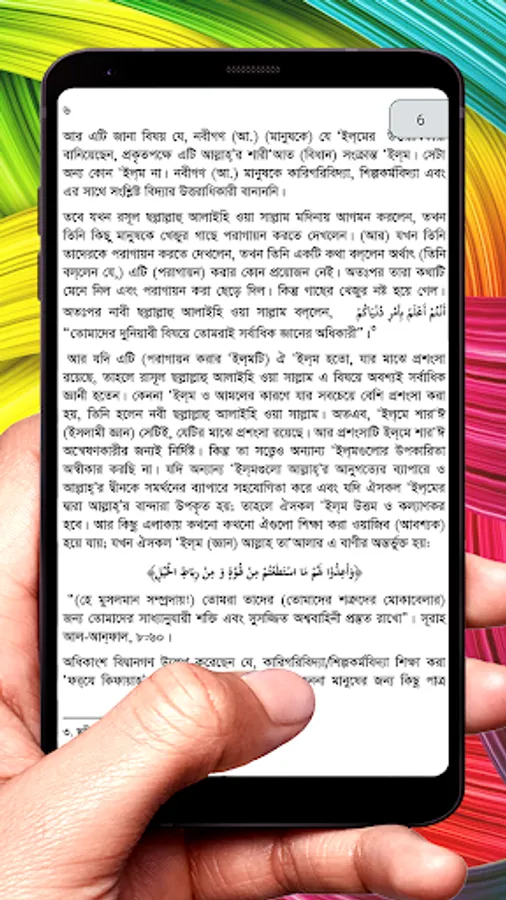 ৬
6
আর এটি জানা বিষয় যে, নবীগণ (আ.) (মানুষকে) যে ‘ইল্‌মের
বানিয়েছেন, প্রকৃতপক্ষে এটি আল্লাহ্’র শারী‘আত (বিধান) সংক্রান্ত ‘ইল্‌ম। সেটা
অন্য কোন ‘ইল্‌ম না। নবীগণ (আ.) মানুষকে কারিগরিবিদ্যা, শিল্পকর্মবিদ্যা এবং
এর সাথে সংশ্লিষ্ট বিদ্যার উত্তরাধিকারী বানাননি।
তবে যখন রসূল ছল্লাল্লাহু আলাইহি ওয়া সাল্লাম মদিনায় আগমন করলেন, তখন
তিনি কিছু মানুষকে খেজুর গাছে পরাগায়ন করতে দেখলেন। (আর) যখন তিনি
তাদেরকে পরাগায়ন করতে দেখলেন, তখন তিনি একটি কথা বল্‌লেন অর্থাৎ (তিনি
বল্‌লেন যে,) এটি (পরাগায়ন) করার কোন প্রয়োজন নেই। অতঃপর তারা কথাটি
মেনে নিল এবং পরাগায়ন করা ছেড়ে দিল। কিন্তু গাছের খেজুর নষ্ট হয়ে গেল।
অতঃপর নাবী ছল্লাল্লাহু আলাইহি ওয়া সাল্লাম বল্‌লেন, أَنْتُمْ أَعْلَمُ بِأَمْرِ دُنْيَاكُمْ
“তোমাদের দুনিয়াবী বিষয়ে তোমরাই সর্বাধিক জ্ঞানের অধিকারী”।৩
আর যদি এটি (পরাগায়ন করার ‘ইল্‌মটি) ঐ ‘ইল্‌ম হতো, যার মাঝে প্রশংসা
রয়েছে, তাহলে রাসূল ছল্লাল্লাহু আলাইহি ওয়া সাল্লাম এ বিষয়ে অবশ্যই সর্বাধিক
জ্ঞানী হতেন। কেননা ‘ইল্‌ম ও আমলের কারণে যার সবচেয়ে বেশি প্রশংসা করা
হয়, তিনি হলেন নবী ছল্লাল্লাহু আলাইহি ওয়া সাল্লাম। অতএব, ‘ইল্‌মে শার‘ঈ
(ইসলামী জ্ঞান) সেটিই, যেটির মাঝে প্রশংসা রয়েছে। আর প্রশংসাটি ইল্‌মে শার‘ঈ
অন্বেষণকারীর জন্যই নির্দিষ্ট। কিন্তু তা সত্ত্বেও অন্যান্য ‘ইল্‌মগুলোর উপকারিতা
অস্বীকার করছি না। যদি অন্যান্য ‘ইল্‌মগুলো আল্লাহ্’র আনুগত্যের ব্যাপারে ও
আল্লাহ্’র দ্বীনকে সমর্থনের ব্যাপারে সহযোগিতা করে এবং যদি ঐসকল ‘ইল্‌মের
দ্বারা আল্লাহ্’র বান্দারা উপকৃত হয়; তাহলে ঐসকল ‘ইল্‌ম উত্তম ও কল্যাণকর
হবে। আর কিছু এলাকায় কখনো কখনো ঐগুলো শিক্ষা করা ওয়াজিব (আবশ্যক)
হয়ে যায়; যখন ঐসকল ‘ইল্‌ম (জ্ঞান) আল্লাহ তা‘আলার এ বাণীর অন্তর্ভুক্ত হয়:
﴿وَأَعِدُّوا لَهُمْ مَا اسْتَطَعْتُمْ مِنْ قُوَّةٍ وَ مِنْ رِبَاطِ الْخَيْلِ﴾
“(হে মুসলমান সম্প্রদায়!) তোমরা তাদের (তোমাদের শত্রুদের মোকাবেলার)
জন্য তোমাদের সাধ্যানুযায়ী শক্তি এবং সুসজ্জিত অশ্ববাহিনী প্রস্তুত রাখো”। সূরাহ
আল-আন্‌ফাল, ৮:৬০।
অধিকাংশ বিদ্বানগণ উল্লেখ করেছেন যে, কারিগরিবিদ্যা/শিল্পকর্মবিদ্যা শিক্ষা করা
‘ফর্‌যে কিফায়াহ্’ মানুষের জন্য কিছু পাত্র
৩.